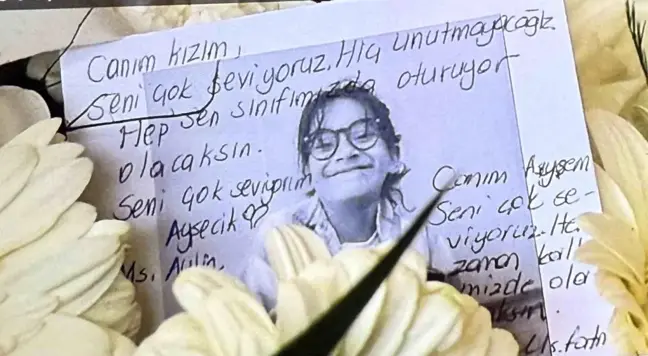 Canım Kızım,
Seni çok seviyoruz. Hiç unutmayacağız.
Hep sen sınıfımızda oturuyor
olacaksın.
Seni çok seviyorum
Ayşecik
Ms. Aylin
Canım Ayşem
Seni çok se-
viyoruz. He
zaman kal
mizde ola